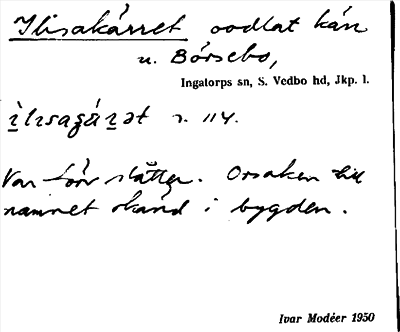 Ilisakärret oodlat kärr
u. Börsebo,
Ingatorps sn, S. Vedbo hd, Jkp. l.
s. 114.
Var förr slåtter. Orsaken till
namnet okänd i bygden.
Ivar Modéer 1950